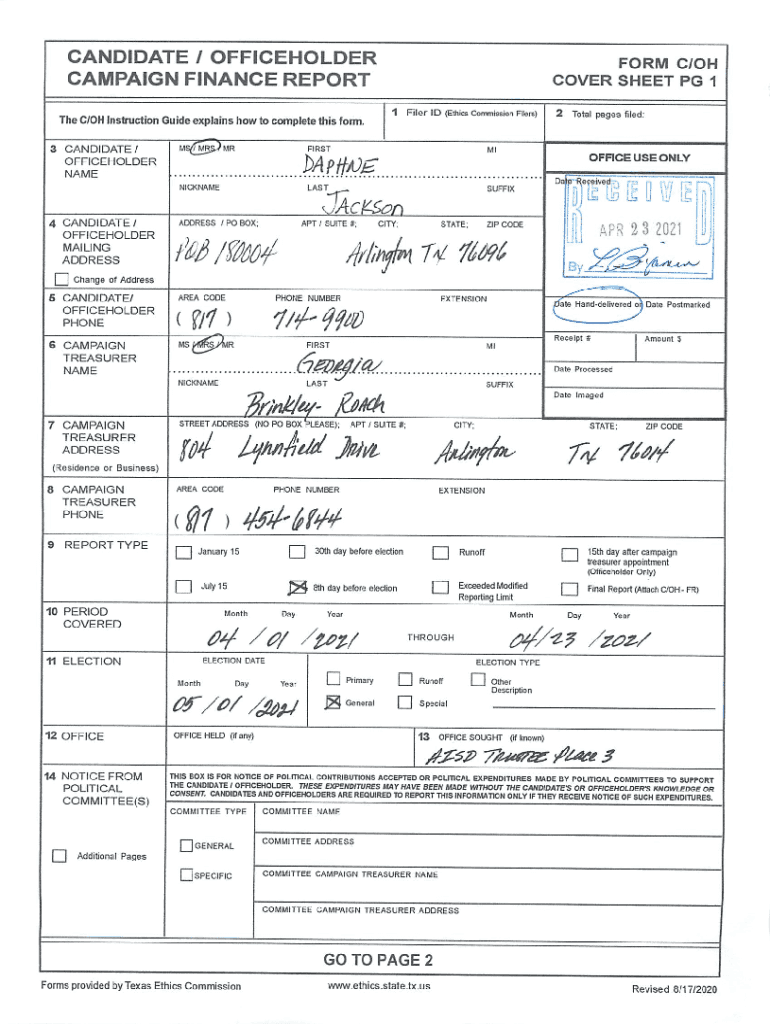 CANDIDATE / OFFICEHOLDER
CAMPAIGN FINANCE REPORT
FORM C/OH
COVER SHEET PG 1
The C/OH Instruction Guide explains how to complete this form.
1 Filer ID (Ethics Commission Filers)
2 Total pages filed:
3 CANDIDATE / OFFICEHOLDER NAME
MS / MRS / MR FIRST MI
DAPHNE
NICKNAME LAST SUFFIX
JACKSON
OFFICE USE ONLY
Date Received
RECEIVED
APR 23 2021
By
4 CANDIDATE / OFFICEHOLDER MAILING ADDRESS
Change of Address
ADDRESS / PO BOX; APT / SUITE #; CITY; STATE; ZIP CODE
POB 180004 Arlington TX 76096
5 CANDIDATE/ OFFICEHOLDER PHONE
AREA CODE PHONE NUMBER EXTENSION
(817) 714-9900
Date Hand-delivered or Date Postmarked
6 CAMPAIGN TREASURER NAME
MS / MRS / MR FIRST MI
GEORGIA
NICKNAME LAST SUFFIX
Brinkley-ROACH
Receipt # Amount $
Date Processed
Date Imaged
7 CAMPAIGN TREASURER ADDRESS
(Residence or Business)
STREET ADDRESS (NO PO BOX PLEASE); APT / SUITE #; CITY; STATE; ZIP CODE
804 Lynnfield Drive Arlington TX 76014
8 CAMPAIGN TREASURER PHONE
AREA CODE PHONE NUMBER EXTENSION
(817) 454-6844
9 REPORT TYPE
January 15 30th day before election Runoff 15th day after campaign treasurer appointment (Officeholder Only)
July 15 8th day before election Exceeded Modified Reporting Limit Final Report (Attach C/OH - FR)
10 PERIOD COVERED
Month Day Year Month Day Year
04 / 01 / 2021 THROUGH 04/23 /2021
11 ELECTION
ELECTION DATE ELECTION TYPE
Month Day Year
05 / 01 / 2021
Primary Runoff Other Description
General Special
12 OFFICE
OFFICE HELD (if any)
13 OFFICE SOUGHT (if known)
AISD TRUSTEE Place 3
14 NOTICE FROM POLITICAL COMMITTEE(S)
THIS BOX IS FOR NOTICE OF POLITICAL CONTRIBUTIONS ACCEPTED OR POLITICAL EXPENDITURES MADE BY POLITICAL COMMITTEES TO SUPPORT
THE CANDIDATE / OFFICEHOLDER. THESE EXPENDITURES MAY HAVE BEEN MADE WITHOUT THE CANDIDATE'S OR OFFICEHOLDER'S KNOWLEDGE OR
CONSENT. CANDIDATES AND OFFICEHOLDERS ARE REQUIRED TO REPORT THIS INFORMATION ONLY IF THEY RECEIVE NOTICE OF SUCH EXPENDITURES.
COMMITTEE TYPE COMMITTEE NAME
GENERAL
COMMITTEE ADDRESS
Additional Pages
SPECIFIC
COMMITTEE CAMPAIGN TREASURER NAME
COMMITTEE CAMPAIGN TREASURER ADDRESS
GO TO PAGE 2
Forms provided by Texas Ethics Commission www.ethics.state.tx.us Revised 8/17/2020